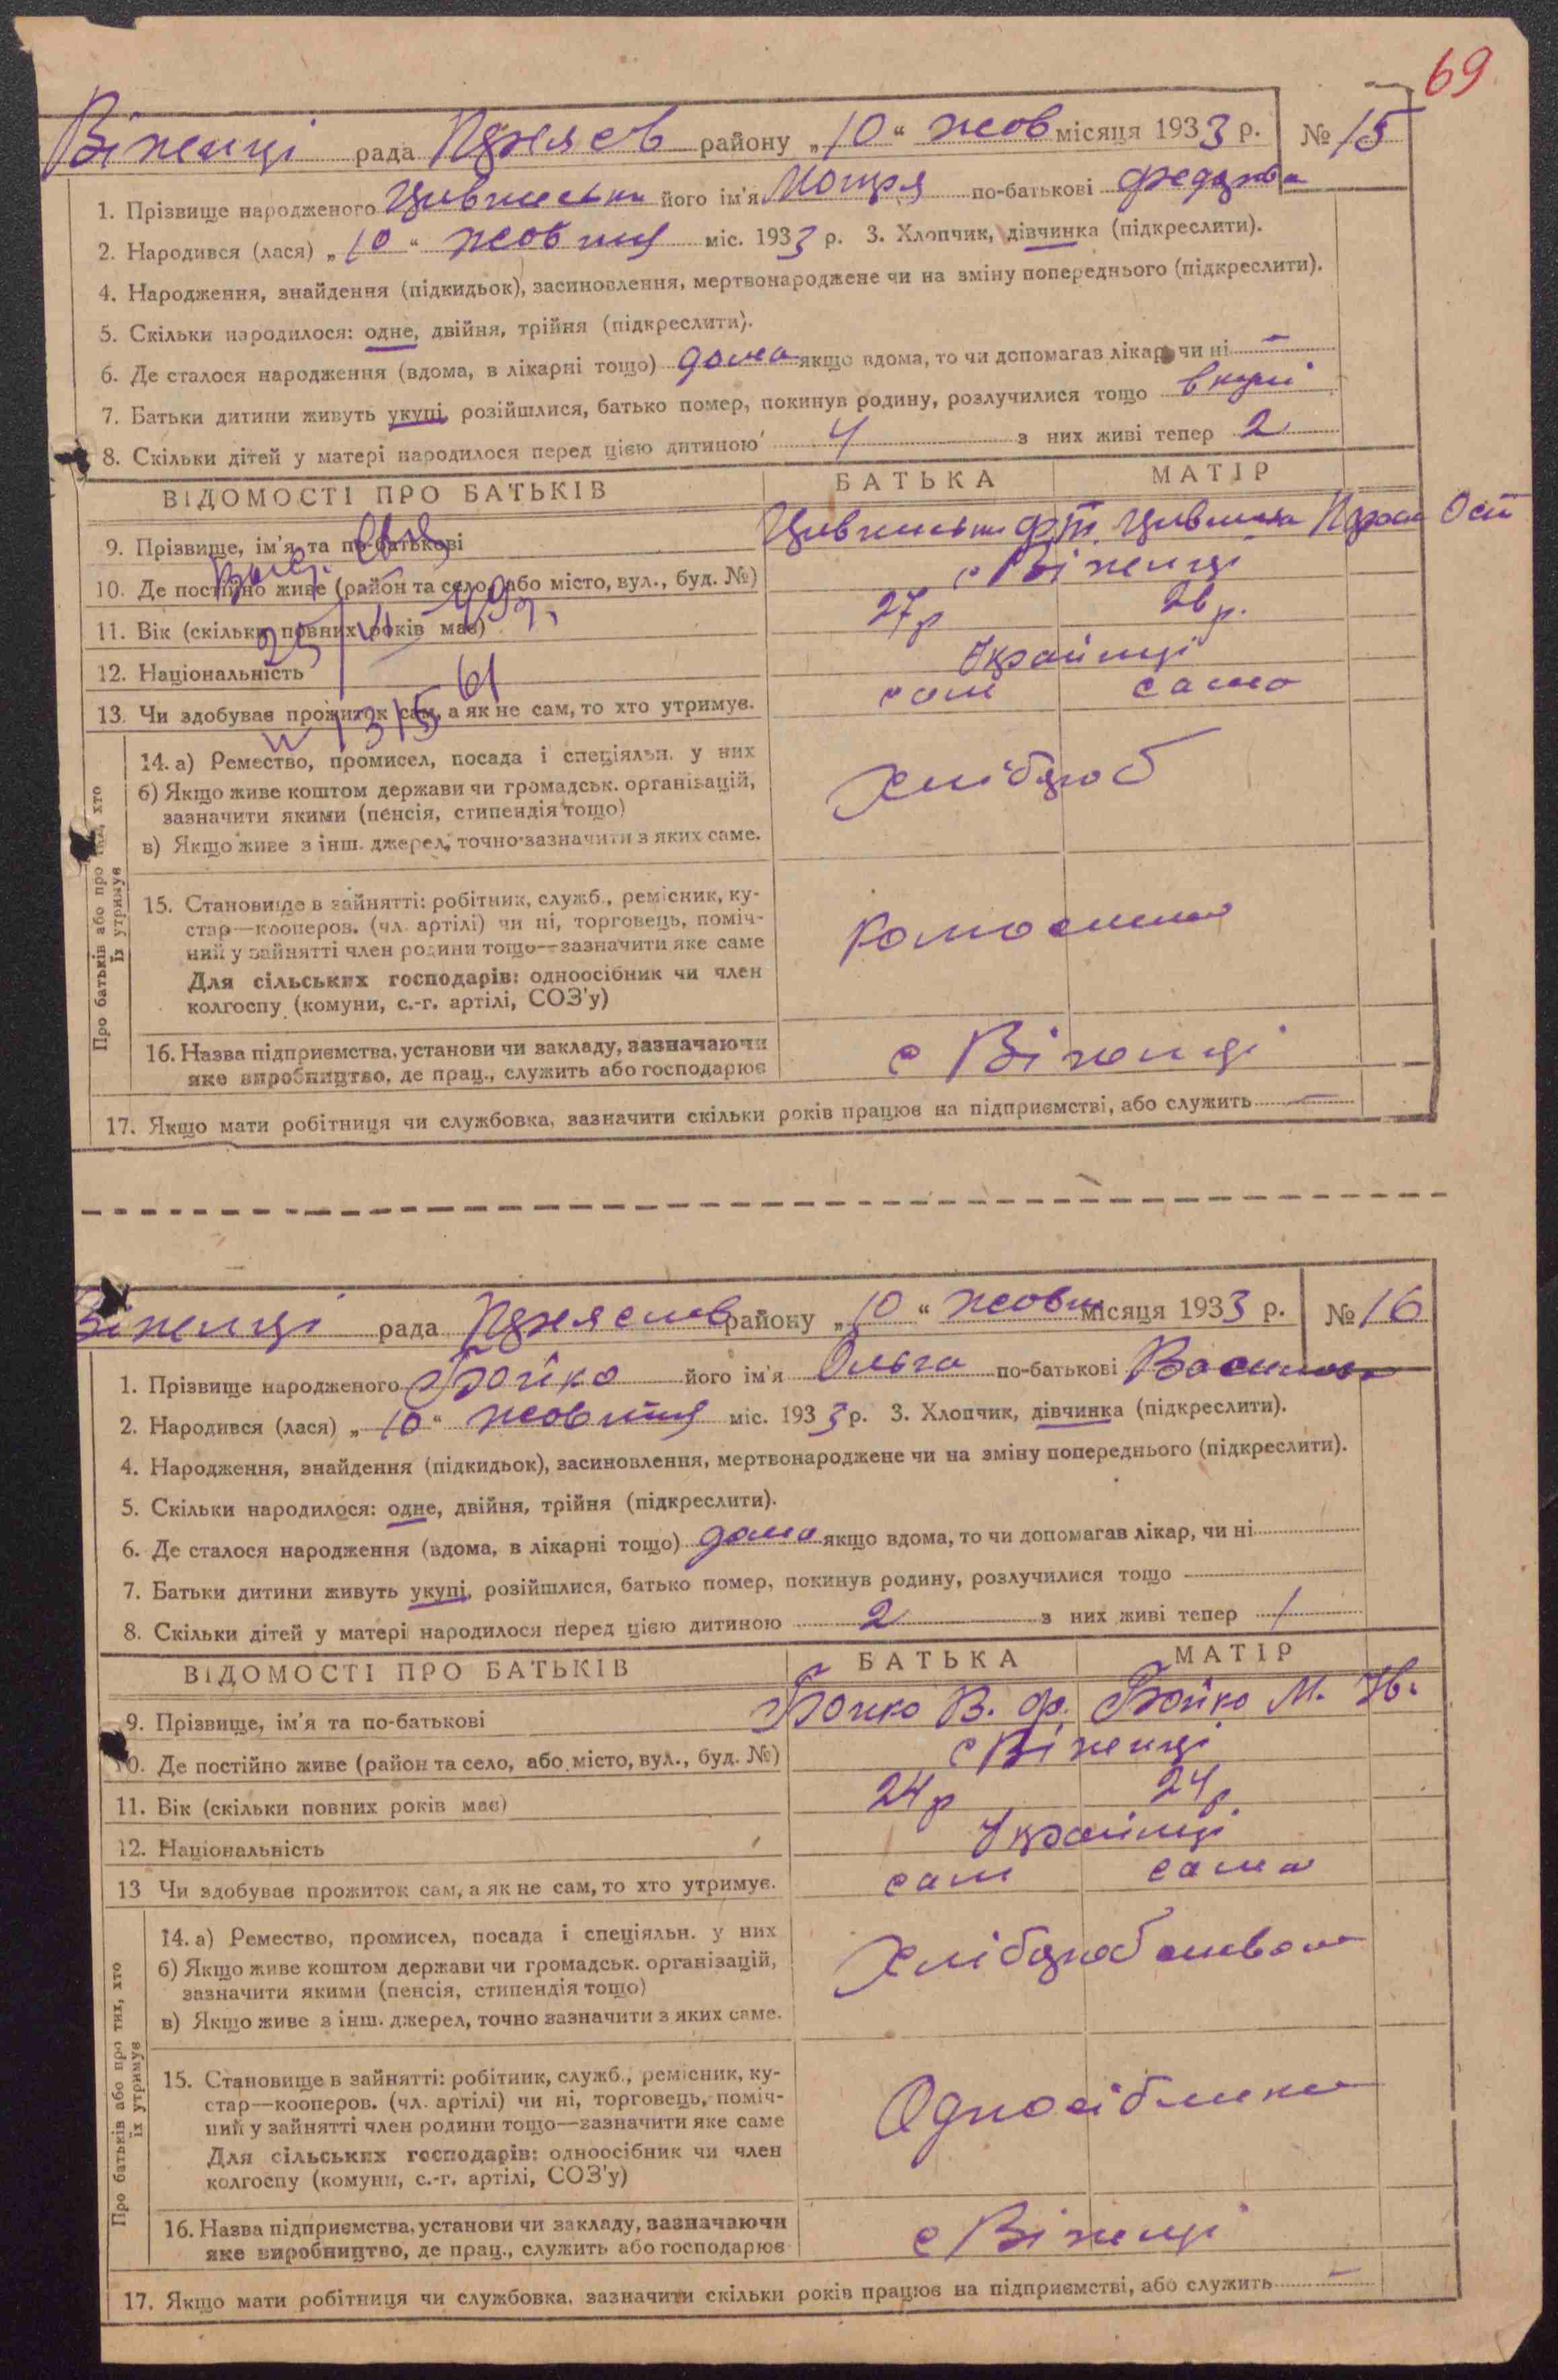 69
Віненці рада району „10“ жов місяця 1933 р. № 15
1. Прізвище народженого його ім'я Мотря по-батькові
2. Народився (лася) „10“ жовтня міс. 1933 р. 3. Хлопчик, дівчинка (підкреслити).
4. Народження, знайдення (підкидьок), засиновлення, мертвонароджене чи на зміну попереднього (підкреслити).
5. Скільки народилося: одне, двійня, трійня (підкреслити).
6. Де сталося народження (вдома, в лікарні тощо) дома якщо вдома, то чи допомагав лікар чи ні —
7. Батьки дитини живуть укупі, розійшлися, батько помер, покинув родину, розлучилися тощо вкупі
8. Скільки дітей у матері народилося перед цією дитиною 4 з них живі тепер 2
ВІДОМОСТІ ПРО БАТЬКІВ БАТЬКА МАТІР
9. Прізвище, ім'я та по-батькові
10. Де постійно живе (район та село, або місто, вул., буд. №) с Віненці
11. Вік (скільки повних років має) 27 р 26 р.
12. Національність Українці
13. Чи здобуває прожиток сам, а як не сам, то хто утримує. сам сама
Про батьків або про тих, хто їх утримує
14. а) Ремество, промисел, посада і спеціяльн. у них Хлібороб
б) Якщо живе коштом держави чи громадськ. організацій,
зазначити якими (пенсія, стипендія тощо)
в) Якщо живе з інш. джерел, точно зазначити з яких саме.
15. Становище в зайнятті: робітник, служб., ремісник, ку-
стар—кооперов. (чл. артілі) чи ні, торговець, поміч-
ний у зайнятті член родини тощо—зазначити яке саме
Для сільських господарів: одноосібник чи член
колгоспу (комуни, с.-г. артілі, СОЗ'у)
16. Назва підприємства, установи чи закладу, зазначаючи
яке виробництво, де прац., служить або господарює с Віненці
17. Якщо мати робітниця чи службовка, зазначити скільки років працює на підприємстві, або служить —
Віненці рада району „10“ жовт місяця 1933 р. № 16
1. Прізвище народженого Бойко його ім'я Ольга по-батькові
2. Народився (лася) „10“ жовтня міс. 1933 р. 3. Хлопчик, дівчинка (підкреслити).
4. Народження, знайдення (підкидьок), засиновлення, мертвонароджене чи на зміну попереднього (підкреслити).
5. Скільки народилося: одне, двійня, трійня (підкреслити).
6. Де сталося народження (вдома, в лікарні тощо) дома якщо вдома, то чи допомагав лікар, чи ні
7. Батьки дитини живуть укупі, розійшлися, батько помер, покинув родину, розлучилися тощо
8. Скільки дітей у матері народилося перед цією дитиною 2 з них живі тепер 1
ВІДОМОСТІ ПРО БАТЬКІВ БАТЬКА МАТІР
9. Прізвище, ім'я та по-батькові Бойко В. Ф. Бойко М.
10. Де постійно живе (район та село, або місто, вул., буд. №) с Віненці
11. Вік (скільки повних років має) 24 р 24 р
12. Національність Українці
13 Чи здобуває прожиток сам, а як не сам, то хто утримує. сам сама
Про батьків або про тих, хто їх утримує
14. а) Ремество, промисел, посада і спеціяльн. у них
б) Якщо живе коштом держави чи громадськ. організацій,
зазначити якими (пенсія, стипендія тощо)
в) Якщо живе з інш. джерел, точно зазначити з яких саме.
15. Становище в зайнятті: робітник, служб., ремісник, ку-
стар—кооперов. (чл. артілі) чи ні, торговець, поміч-
ний у зайнятті член родини тощо—зазначити яке саме
Для сільських господарів: одноосібник чи член
колгоспу (комуни, с.-г. артілі, СОЗ'у)
16. Назва підприємства, установи чи закладу, зазначаючи
яке виробництво, де прац., служить або господарює с Віненці
17. Якщо мати робітниця чи службовка, зазначити скільки років працює на підприємстві, або служить —